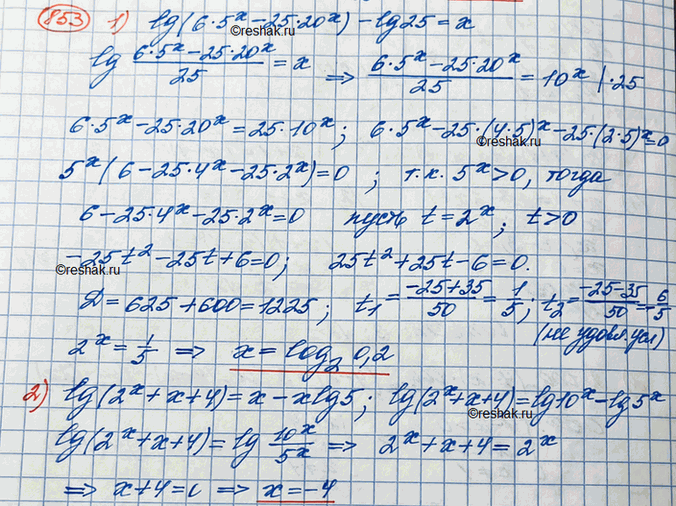 853 1) lg(6·5^x − 25·20^x) − lg25 = x
©reshak.ru
lg (6·5^x − 25·20^x)/25 = x ⇒ (6·5^x − 25·20^x)/25 = 10^x |·25
©reshak.ru
6·5^x − 25·20^x = 25·10^x; 6·5^x − 25·(4·5)^x − 25·(2·5)^x = 0
©reshak.ru
5^x(6 − 25·4^x − 25·2^x) = 0; т.к. 5^x > 0, тогда
6 − 25·4^x − 25·2^x = 0 пусть t = 2^x; t > 0
−25t² − 25t + 6 = 0; 25t² + 25t − 6 = 0.
©reshak.ru
Д = 625 + 600 = 1225; t₁ = (−25+35)/50 = 1/5; t₂ = (−25−35)/50 = −6/5
(не удовл. усл)
2^x = 1/5 ⇒ x = log₂ 0,2
2) lg(2^x + x + 4) = x − xlg5; lg(2^x + x + 4) = lg10^x − lg5^x
©reshak.ru
lg(2^x + x + 4) = lg 10^x/5^x ⇒ 2^x + x + 4 = 2^x
⇒ x + 4 = 0 ⇒ x = −4